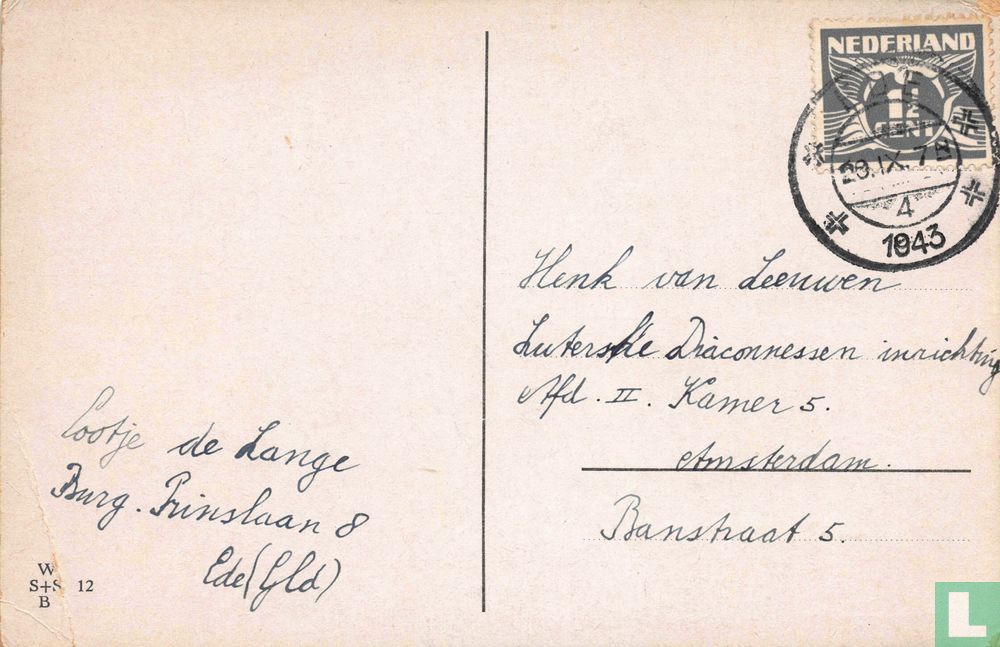 NEDERLAND
1½
CENT
EDE
7
4
1943
Henk van Leeuwen
Luterske Diaconnessen inrichting
Afd. II. Kamer 5.
Amsterdam.
Banstraat 5.
Cootje de Lange
Burg. Prinslaan 8
Ede (Gld)
W
S+S 12
B
L